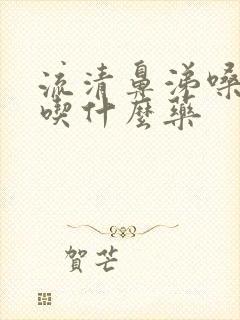 流清鼻涕嗓
喫什麼藥
賀芒